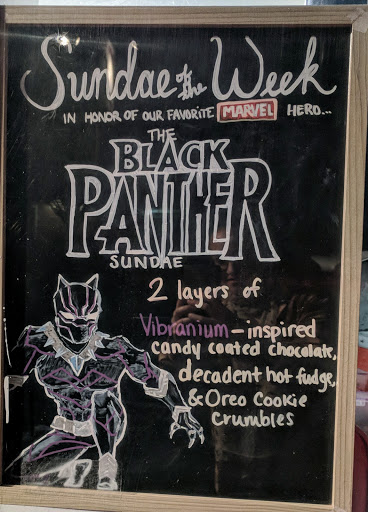 Sundae of the Week
IN HONOR OF OUR FAVORITE MARVEL HERO...
THE
BLACK
PANTHER
SUNDAE
2 layers of
Vibranium-inspired
candy coated chocolate,
decadent hot fudge,
& Oreo Cookie
Crumbles